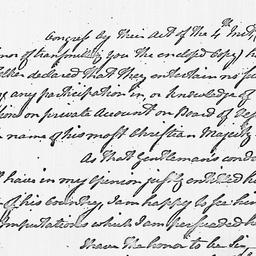 Congress by their Act of the 4th Inst,
nor of transmitting you the enclosed Copy) h
declared that they entertain no su
any participation in, or knowledge of
on private Account on Board of
name of his most Christian Majesty
As that Gentleman's cond
have in my opinion justly entitled h
of his Country, I am happy to see him
Imputations which I am persuaded h
I have the honor to be Sir,